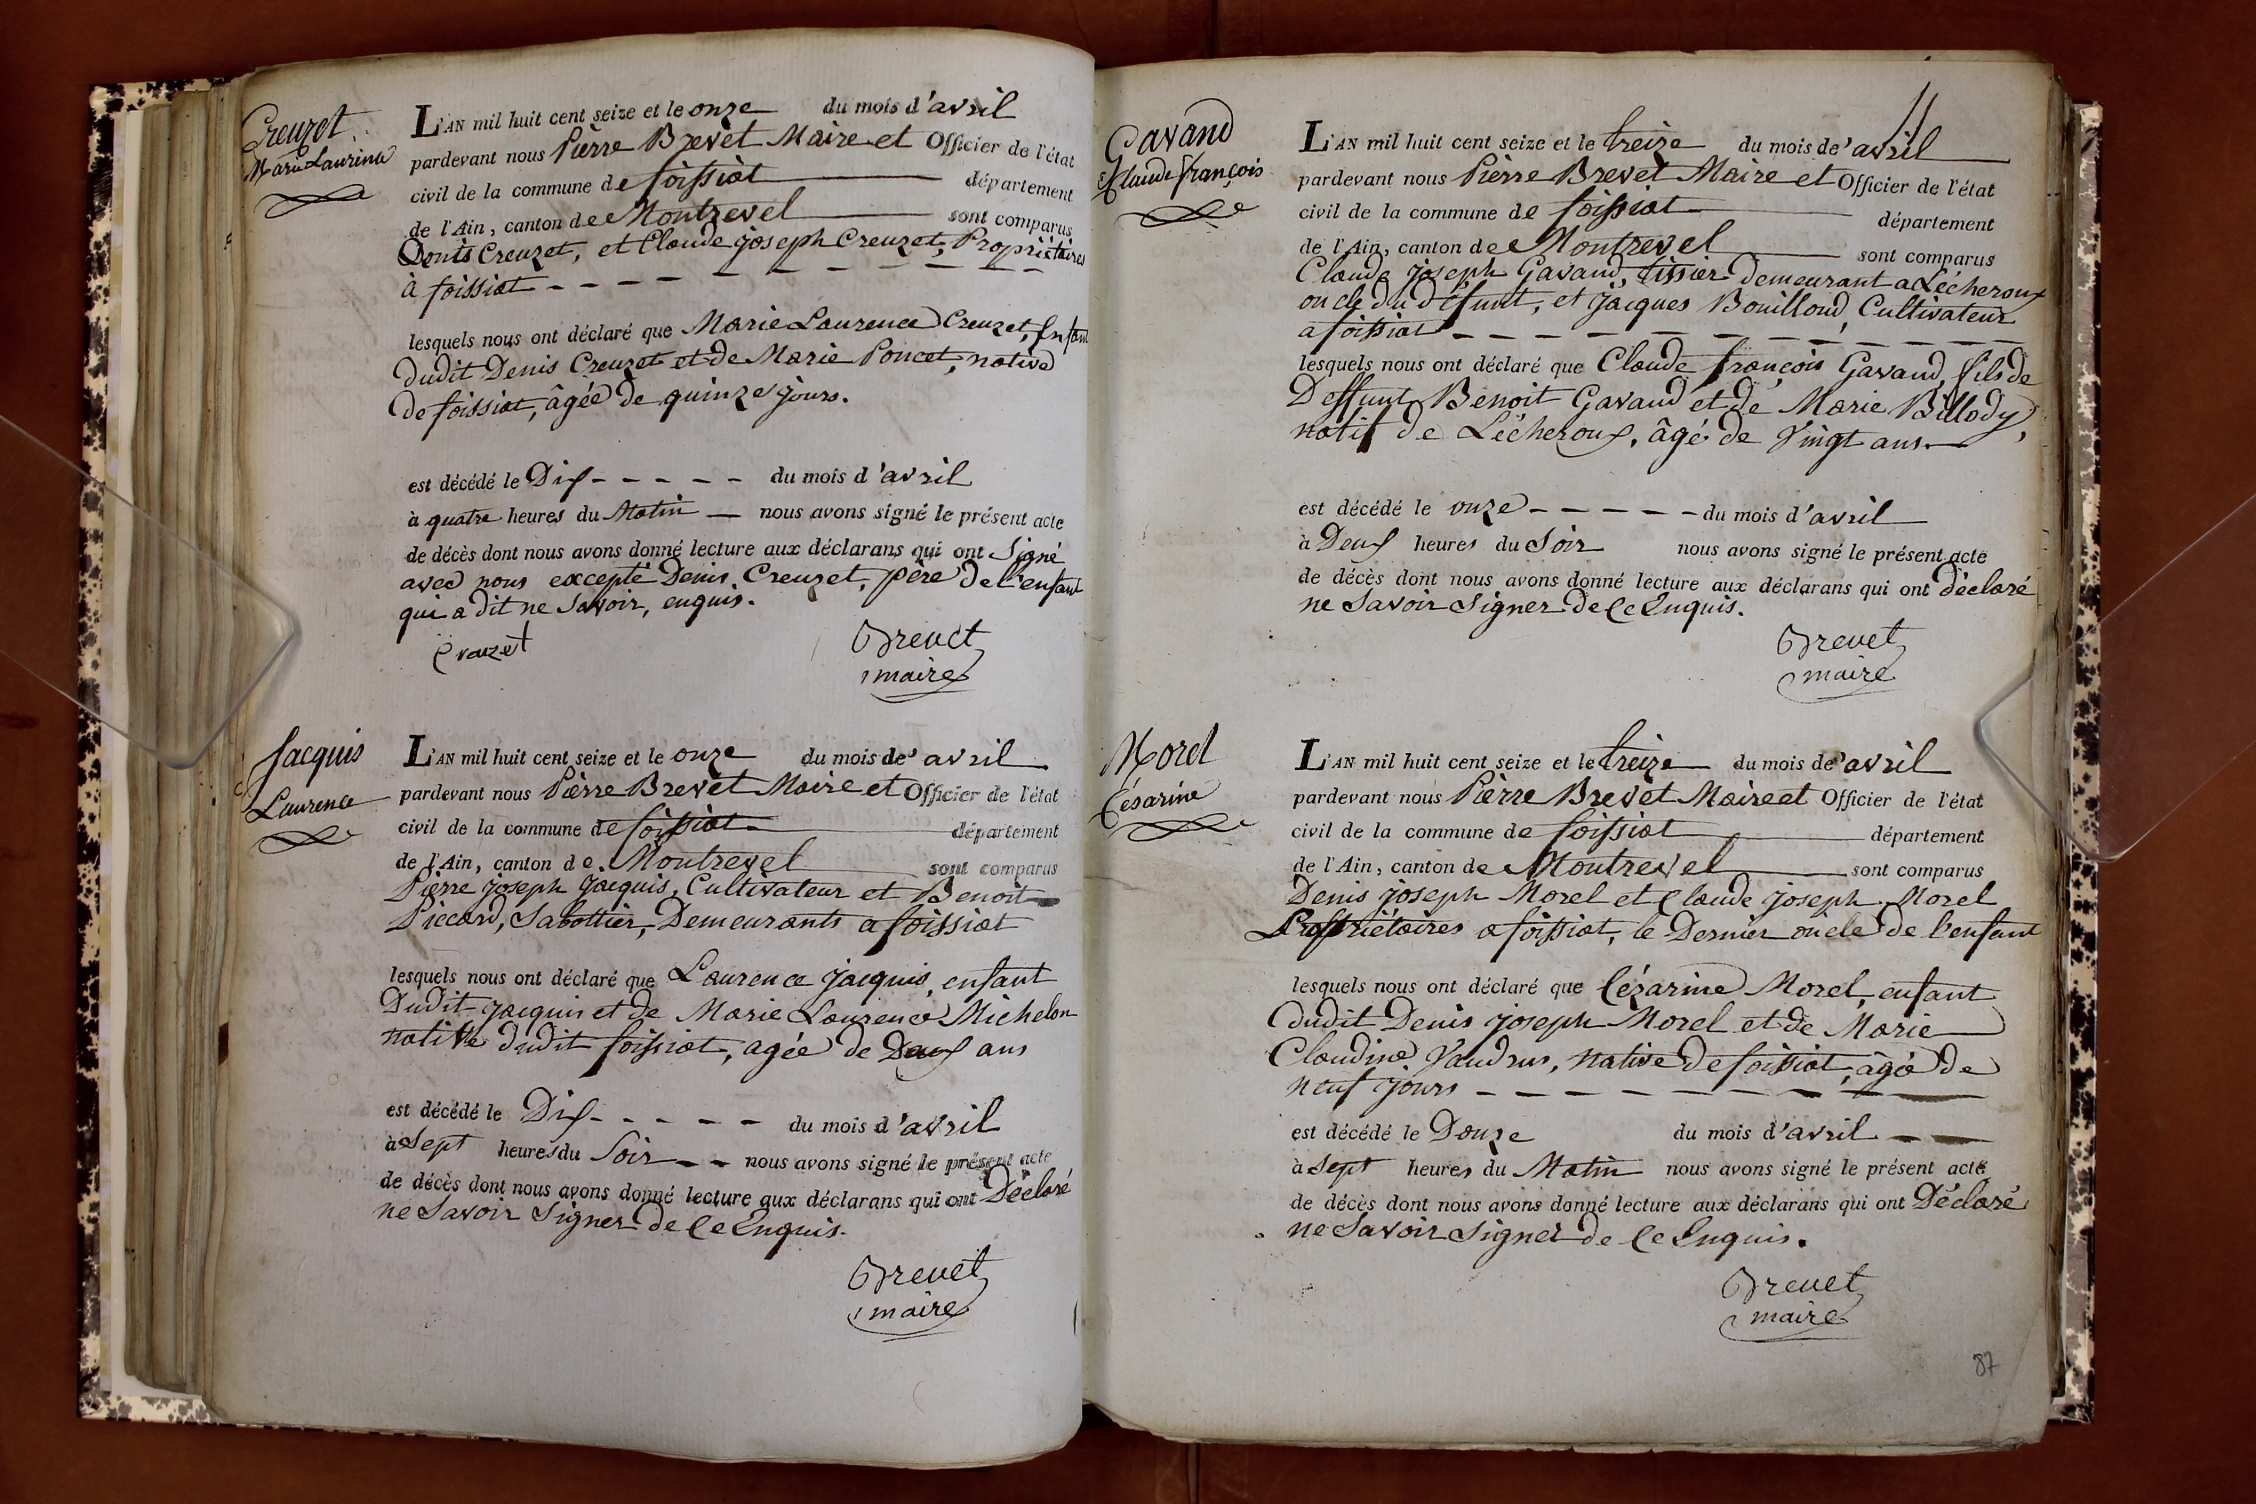 Creuzet
Marie Laurence
L'AN mil huit cent seize et le onze du mois d'avril
pardevant nous Pierre Brevet Maire et Officier de l'état
civil de la commune de foissiat département
de l'Ain, canton de Montrevel sont comparus
Denis Creuzet, et Claude joseph Creuzet, Propriétaires
à foissiat - - - - - - - - - - - -
lesquels nous ont déclaré que Marie Laurence Creuzet, Enfant
dudit Denis Creuzet et de Marie Poncet, native
de foissiat, âgée de quinze jours.
est décédé le Dix - - - - - du mois d'avril
à quatre heures du Matin — nous avons signé le présent acte
de décès dont nous avons donné lecture aux déclarans qui ont Signé
avec nous excepté Denis Creuzet, père de l'enfant
qui a dit ne Savoir, enquis.
Creuzet Brevet
maire
Jacquis
Laurence
L'AN mil huit cent seize et le onze du mois de' avril
pardevant nous Pierre Brevet Maire et Officier de l'état
civil de la commune de foissiat département
de l'Ain, canton de Montrevel sont comparus
Pierre joseph Jacquis, Cultivateur et Benoit
Piccard, Sabottier, Demeurants a foissiat
lesquels nous ont déclaré que Laurence jacquis, enfant
Dudit jacquis et de Marie Laurence Michelon
native dudit foissiat, agée de Deux ans
est décédé le Dix - - - - - du mois d'avril
à Sept heures du Soir - - nous avons signé le présent acte
de décès dont nous avons donné lecture aux déclarans qui ont Déclaré
ne Savoir Signer de Ce Enquis.
Brevet
maire
Gavand
Claude françois
L'AN mil huit cent seize et le treize du mois de' avril
pardevant nous Pierre Brevet Maire et Officier de l'état
civil de la commune de foissiat département
de l'Ain, canton de Montrevel sont comparus
Claude joseph Gavand, tissier demeurant a Lécheroux
oncle du défunt, et jacques Bouilloud, Cultivateur
a foissiat - - - - - - - - - - -
lesquels nous ont déclaré que Claude françois Gavand, fils de
Deffunt Benoit Gavand et de Marie Billody,
natif de Lécheroux, âgé de vingt ans.
est décédé le onze - - - - - du mois d'avril
à Deux heures du Soir nous avons signé le présent acte
de décès dont nous avons donné lecture aux déclarans qui ont déclaré
ne Savoir Signer de Ce Enquis.
Brevet
maire
Morel
Césarine
L'AN mil huit cent seize et le treize du mois de' avril
pardevant nous Pierre Brevet Maire et Officier de l'état
civil de la commune de foissiat département
de l'Ain, canton de Montrevel sont comparus
Denis joseph Morel et Claude joseph Morel
Propriétaires a foissiat, le Dernier oncle de l'enfant
lesquels nous ont déclaré que Cézarine Morel, enfant
dudit Denis joseph Morel et de Marie
Claudine Vaudrus, native de foissiat, âgé de
neuf jours - - - - - - - - - -
est décédé le Douze du mois d'avril - -
à Sept heures du Matin nous avons signé le présent acte
de décès dont nous avons donné lecture aux déclarans qui ont Déclaré
ne Savoir Signer de Ce Enquis.
Brevet
maire
87